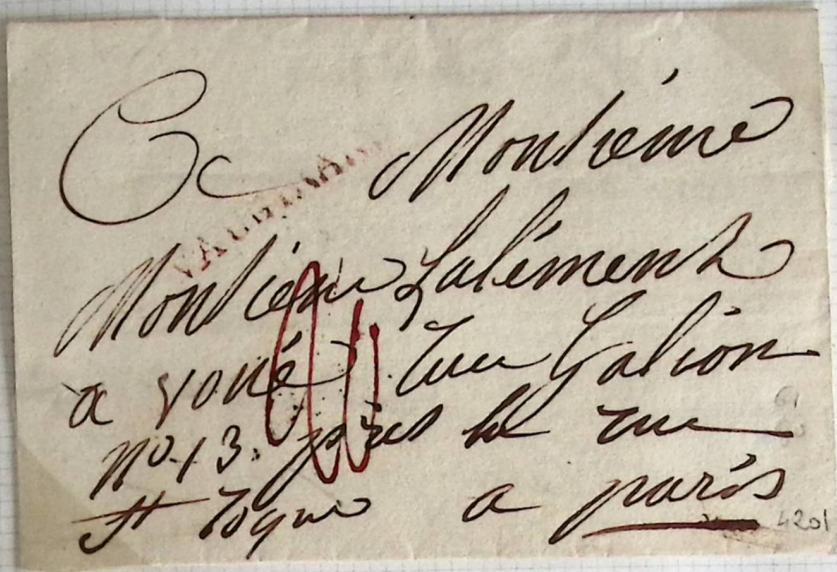 A Monsieur
Monsieur Lalément
a voué rue Galion
No. 13. près la rue
St roque a paris
4201